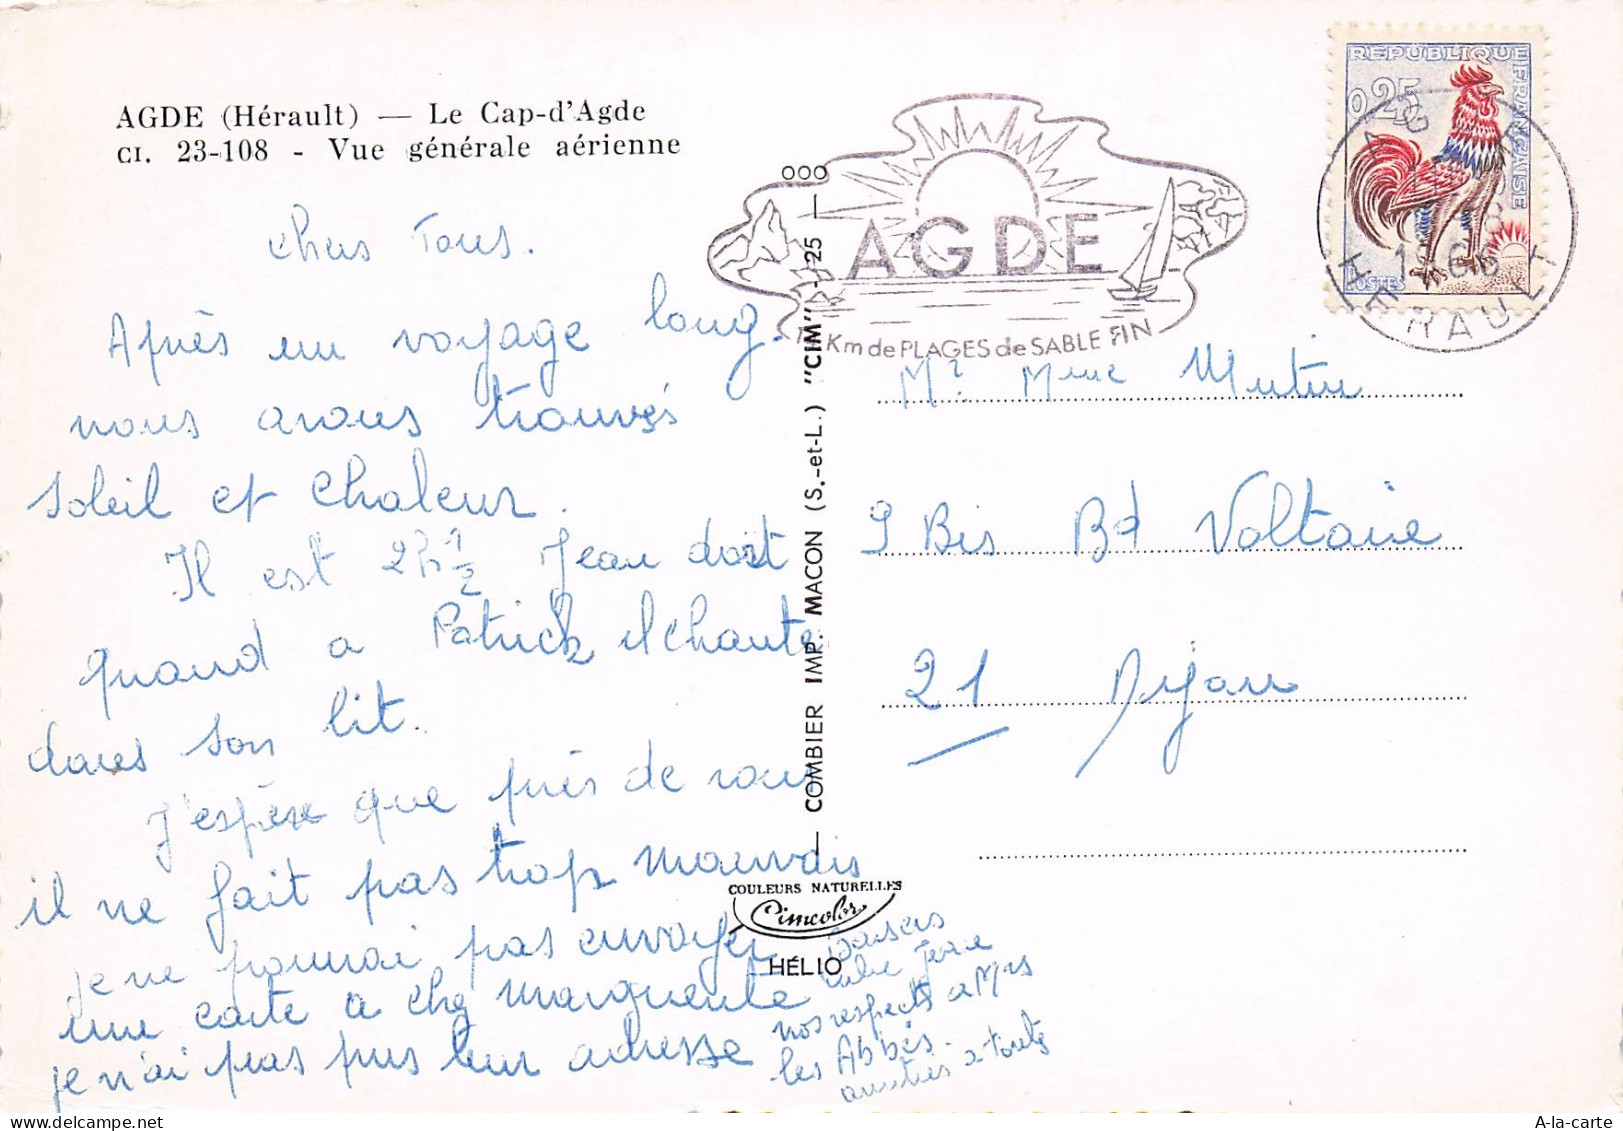 AGDE (Hérault) — Le Cap-d'Agde
CI. 23-108 - Vue générale aérienne
Chers Tous.
Après un voyage long
nous avons trouvés
soleil et chaleur.
Il est 2h 1/2 Jean dort
quand a Patrick il chante
dans son lit.
J'espère que près de vous
il ne fait pas trop mauvais
je ne pourrai pas envoyer
une carte a chez marguerite
je n'ai pas pris leur adresse
Baisers
nos respects a Mrs
les Abbés.
amitiés a touts
COMBIER IMP. MACON (S.-et-L.) "CIM" - 25
COULEURS NATURELLES
Cimcolor
HÉLIO
000
AGDE
Km de PLAGES de SABLE FIN
REPUBLIQUE FRANÇAISE
0,25
POSTES
AGDE
HERAULT
Mr Mme Mutin
9 Bis Bd Voltaire
21 Dijon
A-la-carte